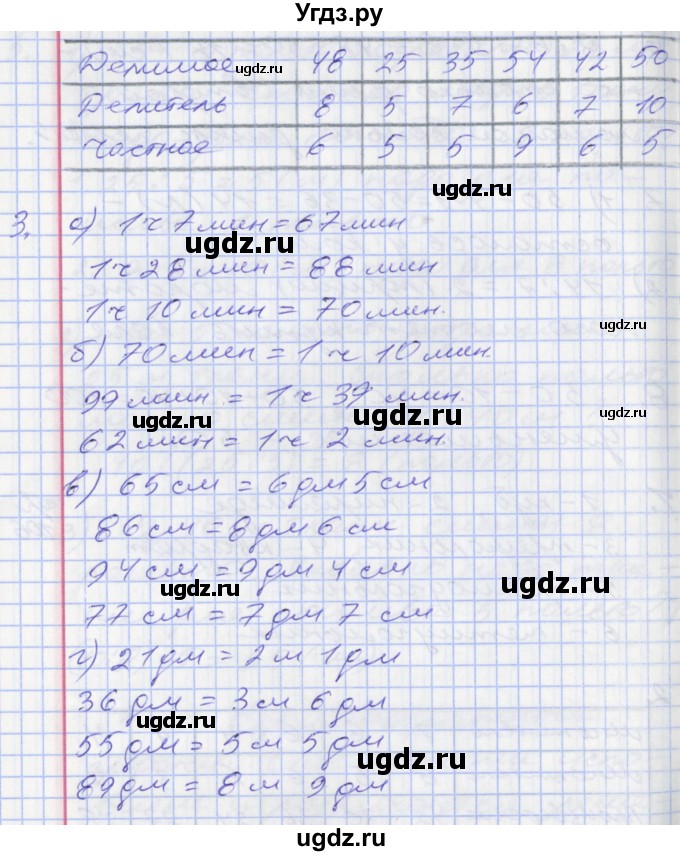 Угдз.ру
Делимое 48 25 35 54 42 50
Делитель 8 5 7 6 7 10
Частное 6 5 5 9 6 5
3. а) 1 ч 7 мин = 67 мин
1 ч 28 мин = 88 мин
1 ч 10 мин = 70 мин.
б) 70 мин = 1 ч 10 мин.
99 мин = 1 ч 39 мин.
62 мин = 1 ч 2 мин.
в) 65 см = 6 дм 5 см
86 см = 8 дм 6 см
94 см = 9 дм 4 см
77 см = 7 дм 7 см
г) 21 дм = 2 м 1 дм
36 дм = 3 м 6 дм
55 дм = 5 м 5 дм
89 дм = 8 м 9 дм
ugdz.ru
ugdz.ru
ugdz.ru
ugdz.ru
ugdz.ru
ugdz.ru
ugdz.ru
ugdz.ru
ugdz.ru
ugdz.ru
ugdz.ru
ugdz.ru